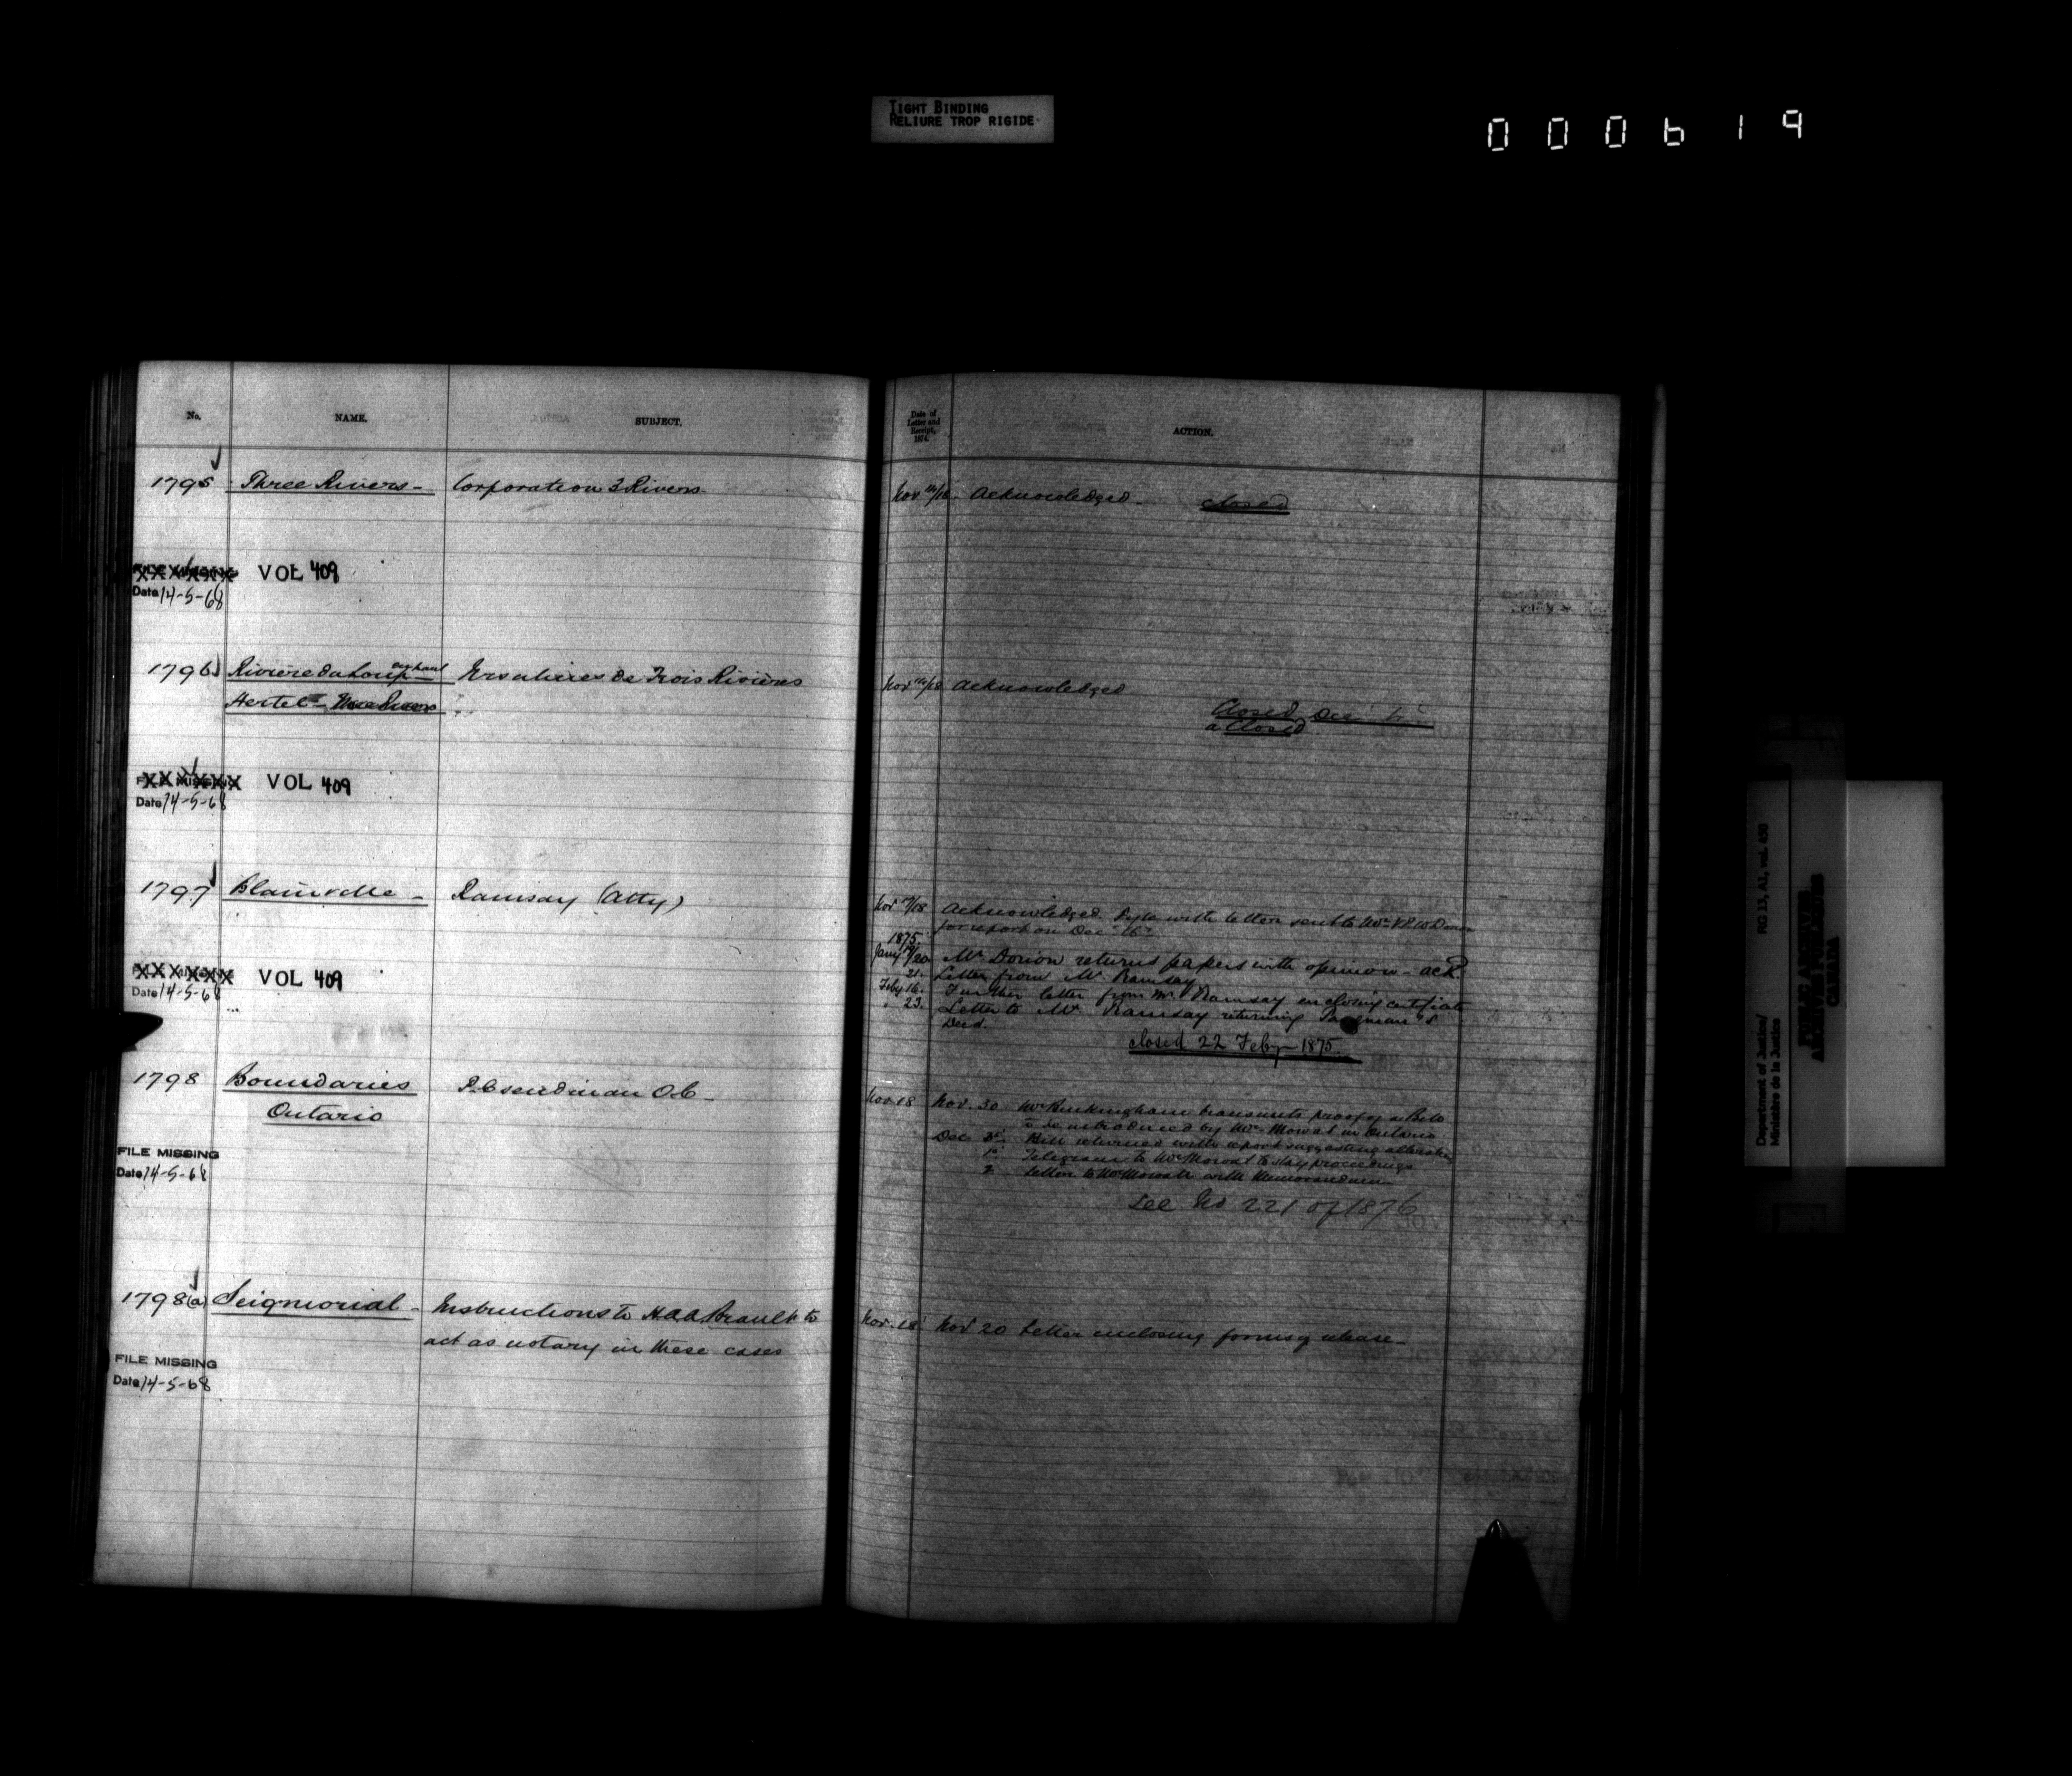 TIGHT BINDING
RELIURE TROP RIGIDE
000619
No. NAME. SUBJECT.
1795 Three Rivers - Corporation 3 Rivers
FILE MISSING VOL 409
Date 14-5-68
1796 Riviere du Loup en haut Ursulines de Trois Rivières
Hertel
FILE MISSING VOL 409
Date 14-5-68
1797 Blainville - Ramsay (Atty)
FILE MISSING VOL 409
Date 14-5-68
1798 Boundaries P.C. send in an O.C.
Ontario
FILE MISSING
Date 14-5-68
1798(a) Seigniorial - Instructions to H.A.A. Brault to
act as notary in these cases
FILE MISSING
Date 14-5-68
Date of
Letter and
Receipt,
1874.
ACTION.
Nov 18 Acknowledged - closed
Nov 18 Acknowledged
Closed Dec
a Closed
Nov 18 Acknowledged. with letter sent to Mr
for report on Dec 16
1875
Jany 19/20 Mr. Dorion returns papers with opinion - ack.
21. Letter from Mr Ramsay
Feby 16. Further letter from Mr Ramsay enclosing certificate
" 23. Letter to Mr Ramsay returning
Deed.
closed 22 Feby 1875.
Nov. 18 Nov. 30 Mr Buckingham transmits proof of a Bill
to be introduced by Mr. Mowat in Ontario
Dec Bill returned with report suggesting alteration
1 Telegram to Mr Mowat to stay proceedings
2 Letter to Mr Mowat with Memorandum
See No 221 of 1876
Nov. 18 Nov 20 Letter enclosing forms of release
Department of Justice/
Ministère de la Justice
RG 13, A1, vol. 450
PUBLIC ARCHIVES
ARCHIVES PUBLIQUES
CANADA